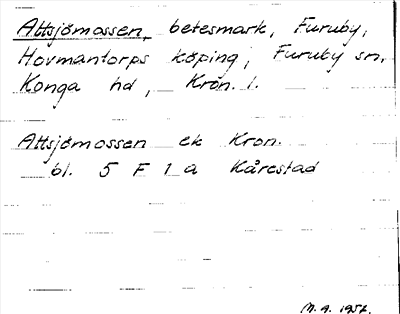 Attsjömossen, betesmark, Furuby,
Hovmantorps köping, Furuby sn,
Konga hd, Kron. l.
Attsjömossen ek Kron.
bl. 5 F 1 a Kårestad
M.A. 1957.